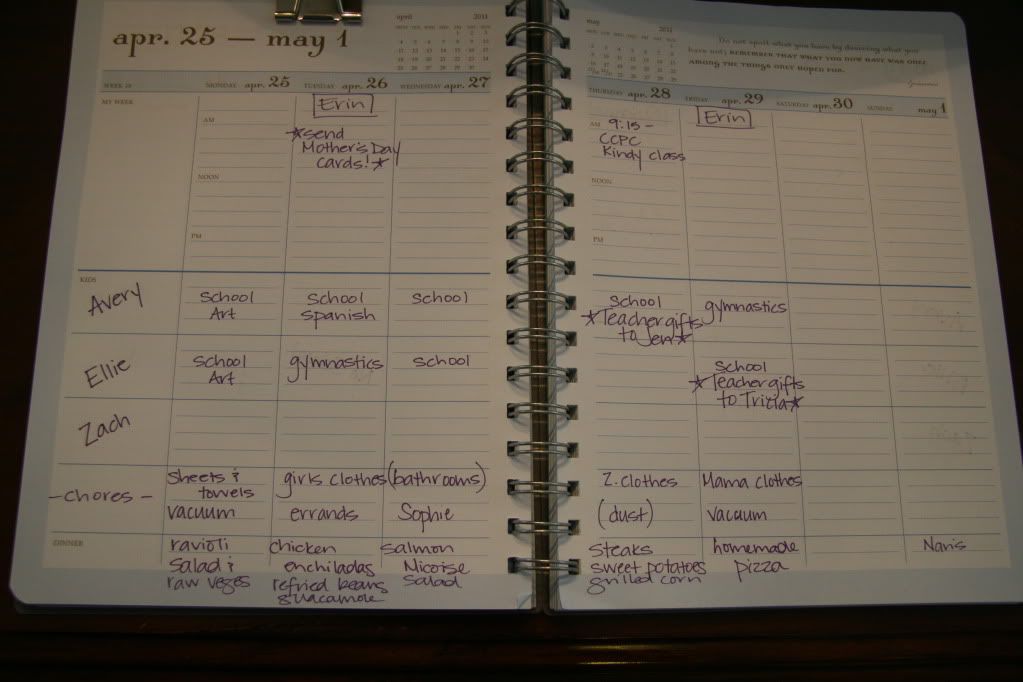 apr. 25 — may 1
april 2011
may 2011
Do not spoil what you have by desiring what you
have not; REMEMBER THAT WHAT YOU NOW HAVE WAS ONCE
AMONG THE THINGS ONLY HOPED FOR.
MONDAY apr. 25
TUESDAY apr. 26
WEDNESDAY apr. 27
THURSDAY apr. 28
FRIDAY apr. 29
SATURDAY apr. 30
SUNDAY may 1
MY WEEK
AM
NOON
PM
Erin
★send
Mother's Day
cards!★
AM 9:15 -
CCPC
Kindy class
NOON
PM
Erin
KIDS
Avery
school
Art
school
spanish
school
school
★Teacher gifts
to Jen★
gymnastics
Ellie
school
Art
gymnastics
school
school
★Teacher gifts
to Tricia★
Zach
-chores-
sheets &
towels
vacuum
girls clothes
errands
(bathrooms)
Sophie
Z. clothes
(dust)
Mama clothes
vacuum
DINNER
ravioli
salad &
raw veges
chicken
enchiladas
refried beans
guacamole
salmon
Nicoise
salad
steaks
sweet potatoes
grilled corn
homemade
pizza